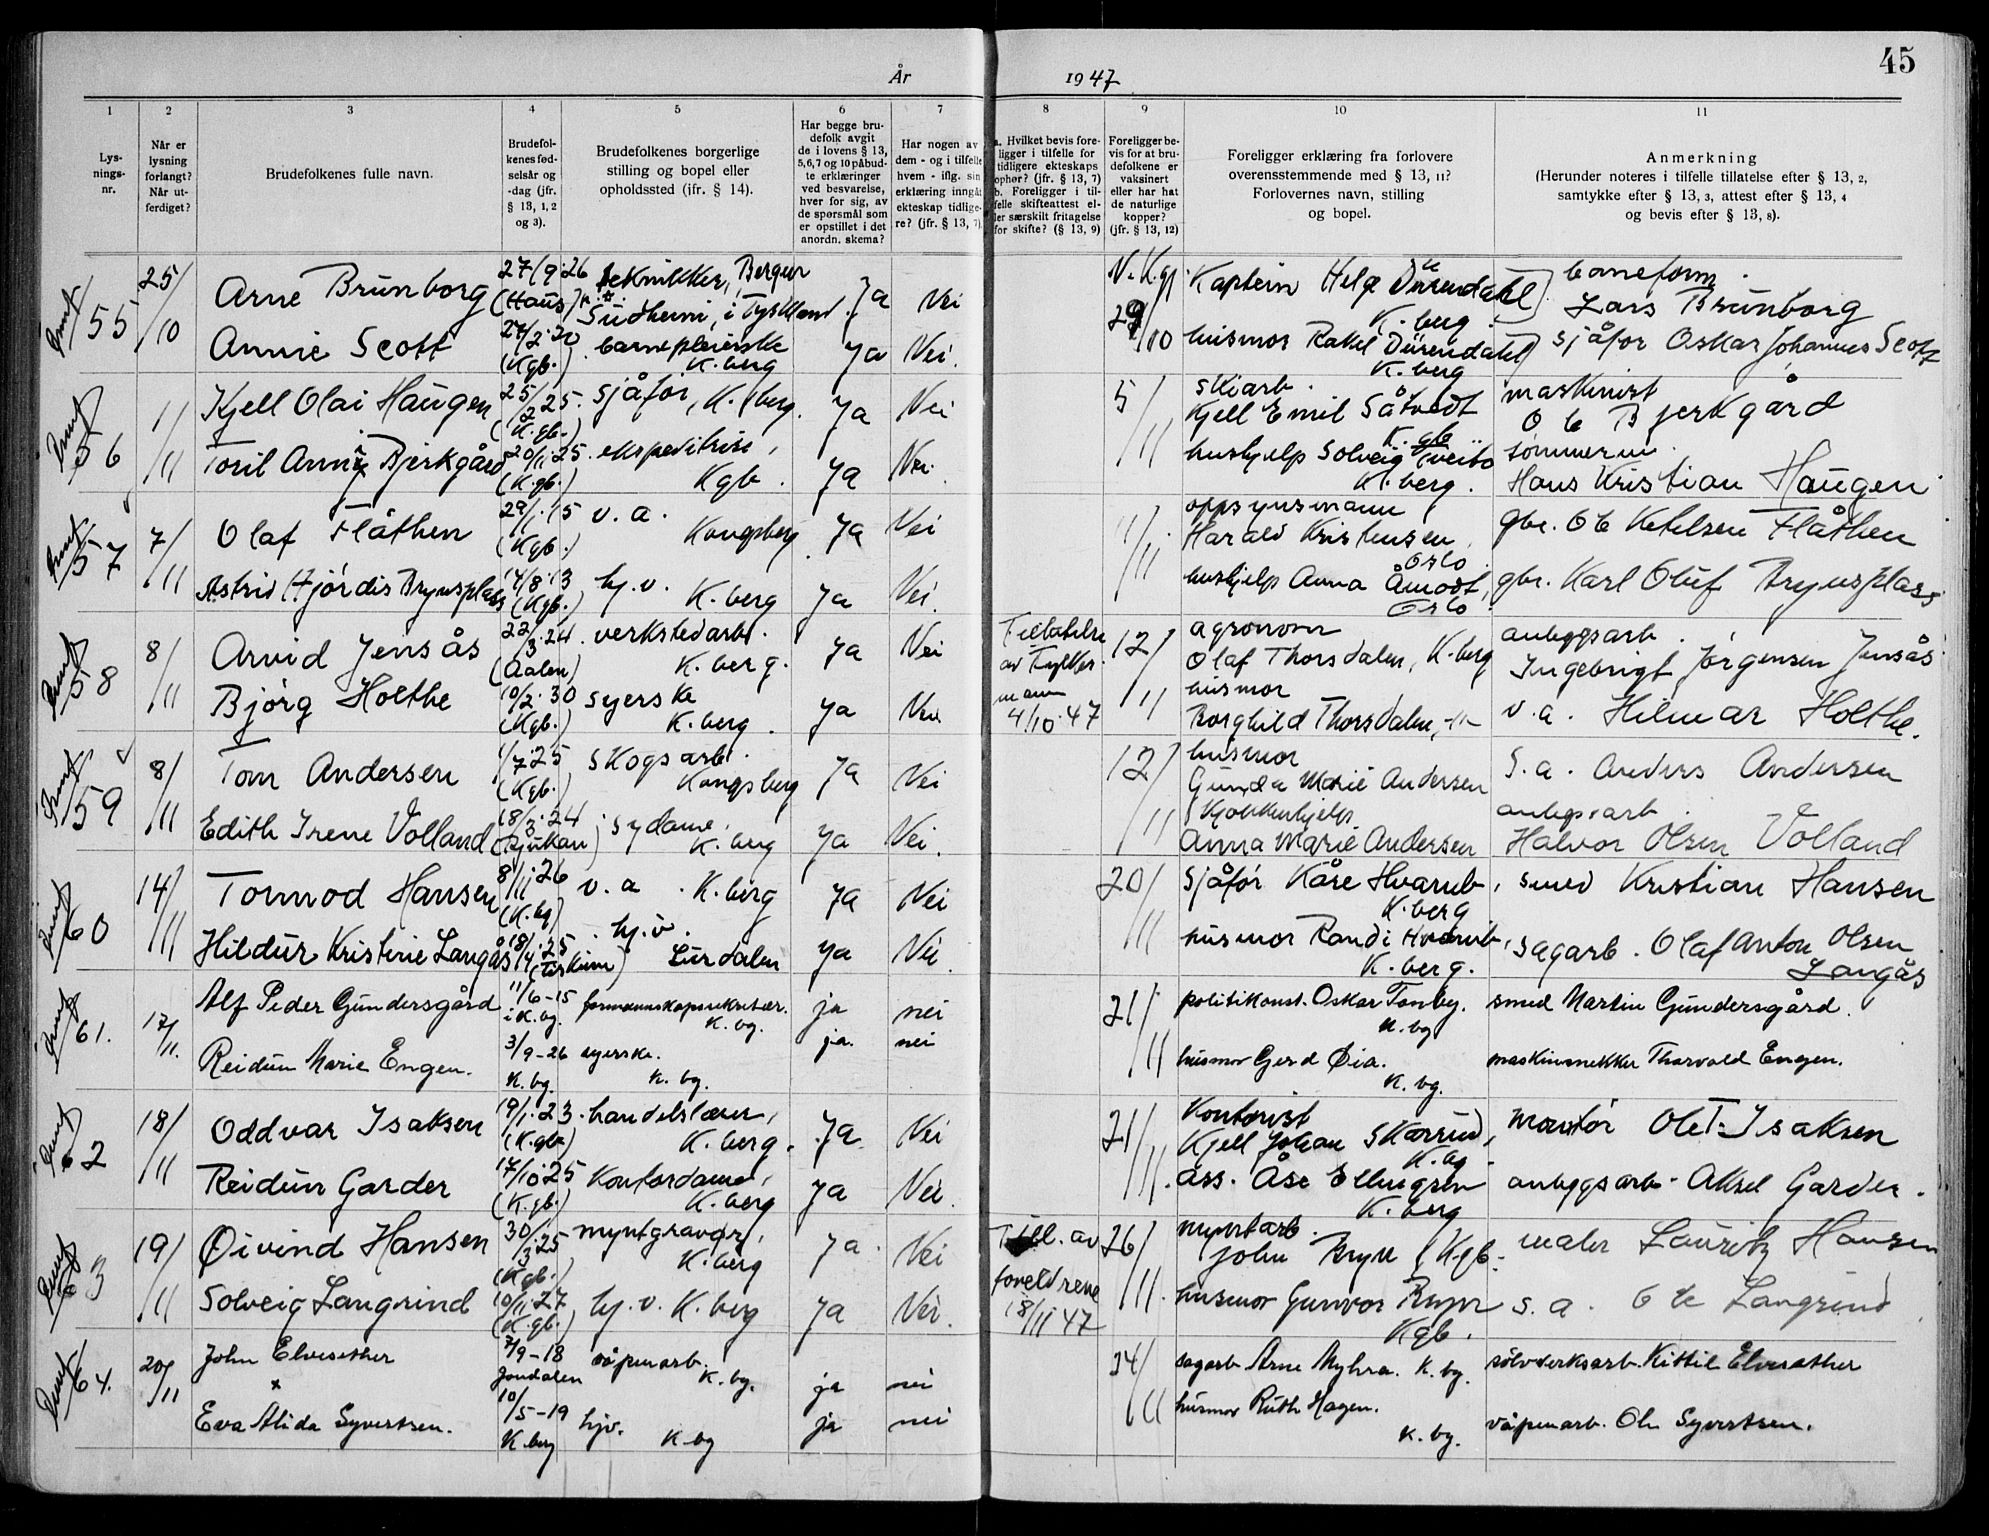 45
År 1947
1 2 3 4 5 6 7 8 9 10 11
Lys-
nings-
nr.
Når er
lysning
forlangt?
Når ut-
ferdiget?
Brudefolkenes fulle navn.
Brudefol-
kenes fød-
selsår og
-dag (jfr.
§ 13, 1, 2
og 3).
Brudefolkenes borgerlige
stilling og bopel eller
opholdssted (jfr. § 14).
Har begge bru-
defolk avgit
de i lovens § 13,
5,6,7 og 10 påbud-
te erklæringer
ved besvarelse,
hver for sig, av
de spørsmål som
er opstillet i det
anordn. skema?
Har nogen av
dem - og i tilfelle
hvem - iflg. sin
erklæring inngått
ekteskap tidlige-
re? (jfr. § 13, 7)
a. Hvilket bevis fore-
ligger i tilfelle for
tidligere ekteskaps
ophør? (jfr. § 13, 7)
b. Foreligger i til-
felle skifteattest el-
ler særskilt fritagelse
for skifte? (§ 13, 9)
Foreligger be-
vis for at bru-
defolkene er
vaksinert
eller har hat
de naturlige
kopper?
(jfr. § 13, 12)
Foreligger erklæring fra forlovere
overensstemmende med § 13, 11?
Forlovernes navn, stilling
og bopel.
Anmerkning
(Herunder noteres i tilfelle tillatelse efter § 13, 2,
samtykke efter § 13, 3, attest efter § 13, 4
og bevis efter § 13, 8).
55 25/10 Arne Brunborg 27/9.26 (Haus) tekniker, Ja Nei
Kaptein Helge Dürendahl K.berg baneform. Lars Brunborg
Annie Scott 27/2.20 (Kgb.) barnepleierske K.berg Ja Nei.
29/10 husmor Rakel Dürendahl K.berg sjåfør Oskar Johannes Scott
56 1/11 Kjell Olai Haugen 25/2 25. (K.gb.) sjåfør, K.berg. Ja Nei
5/11 skiarb. Kjell Emil Såtvedt K.gb maskinist Ole Bjerkgård
Toril Anny Bjerkgård 20/11.25. (K.gb.) ekspeditrise, Kgb. Ja Nei.
hushjelp Solveig Tveito K.berg. Hans Kristian Haugen
57 7/11 Olaf Flåthen 29/1.15 (Kgb.) v.a. Kongsberg Ja Nei
11/11 oppsynsmann Harald Kristensen Oslo gbr. Ole Ketilsen Flåthen
Astrid Hjördis Brynsplass 14/8.13 (Kgb.) hj.v. K.berg Ja Nei.
hushjelp Anna Åmodt, Oslo gbr. Karl Oluf Brynsplass
58 8/11 Arvid Jensås 22/3.24 (Aalen) verkstedarb. K.berg. Ja Nei
Tillatelse av Fylkes-mann 4/10.47
12/11 agronom Olaf Thorsdalen, K.berg anleggsarb. Ingebrigt Jørgensen Jensås
Bjørg Holthe 10/2.30 (Kgb.) syerske K.berg. Ja Nei
husmor Borghild Thorsdalen, -"- v.a. Hilmar Holthe.
59 8/11 Tom Andersen 1/7.25 (Kgb.) skogsarb. Kongsberg Ja Nei
12/11 husmor Gunda Marie Andersen S.a. Anders Andersen
Edith Irene Volland 18/3.24 (Rjukan) sydame, K.berg Ja Nei.
kjøkkenhjelp Anna Marie Andersen anlegsarb. Halvor Olsen Volland
60 14/11 Tormod Hansen 8/11.26 v.a. K.berg Ja Nei
20/11 sjåfør Kåre Hvamb, K.berg smed Kristian Hansen
Hildur Kristine Langås 18/4.25 hj.v. Lurdalen Ja Nei.
husmor Randi Hvamb, K.berg. sagarb. Olaf Anton Olsen Langås
61. 17/11. Alf Peder Gundersgård 11/6-15 i K.bg. formannskapssekretær. K.bg. ja nei
21/11 politikonst. Oskar Tomby. K.bg smed Martin Gundersgård.
Reidun Marie Engen. 3/9-26 K.bg. syerske. K.bg. ja. nei
husmor Gerd Øia. K.bg. maskinsnekker Thorvald Engen.
62 18/11 Oddvar Isaksen 19/1.23. (K.gb.) handelslærer, K.berg. Ja Nei
21/11. Kontorist Kjell Johan Skarrud, K.bg. montør Ole T. Isaksen
Reidun Garder 17/10.25 (K.gb.) Kontordame, K.berg Ja Nei.
ass. Åse Ellingsen K.berg anleggsarb. Aksel Garder.
63 19/11 Øivind Hansen 30/3.25 (Kgb.) myntgravør, K.berg Ja. Nei
Till. av foreldrene 18/11 47
26/11. myntarb. John Bryn K.gb. maler Lauritz Hansen
Solveig Langrind 10/11.27 (K.gb.) hj.v. K.berg Ja Nei.
husmor Gunvor Bryn Kgb. s.a. Ole Langrind
64. 20/11 John Elvesether 7/9-18 Jondalen våpenarb. K.bg. ja nei
24/11 sagarb. Arne Myhra. K.bg. sølvverksarb. Kittil Elvesæther
x
Eva Alida Syvertsen. 10/5-19 K.berg hjv. K.bg ja nei
husmor Ruth Hagen. K.bg. våpenarb. Ole Syvertsen.